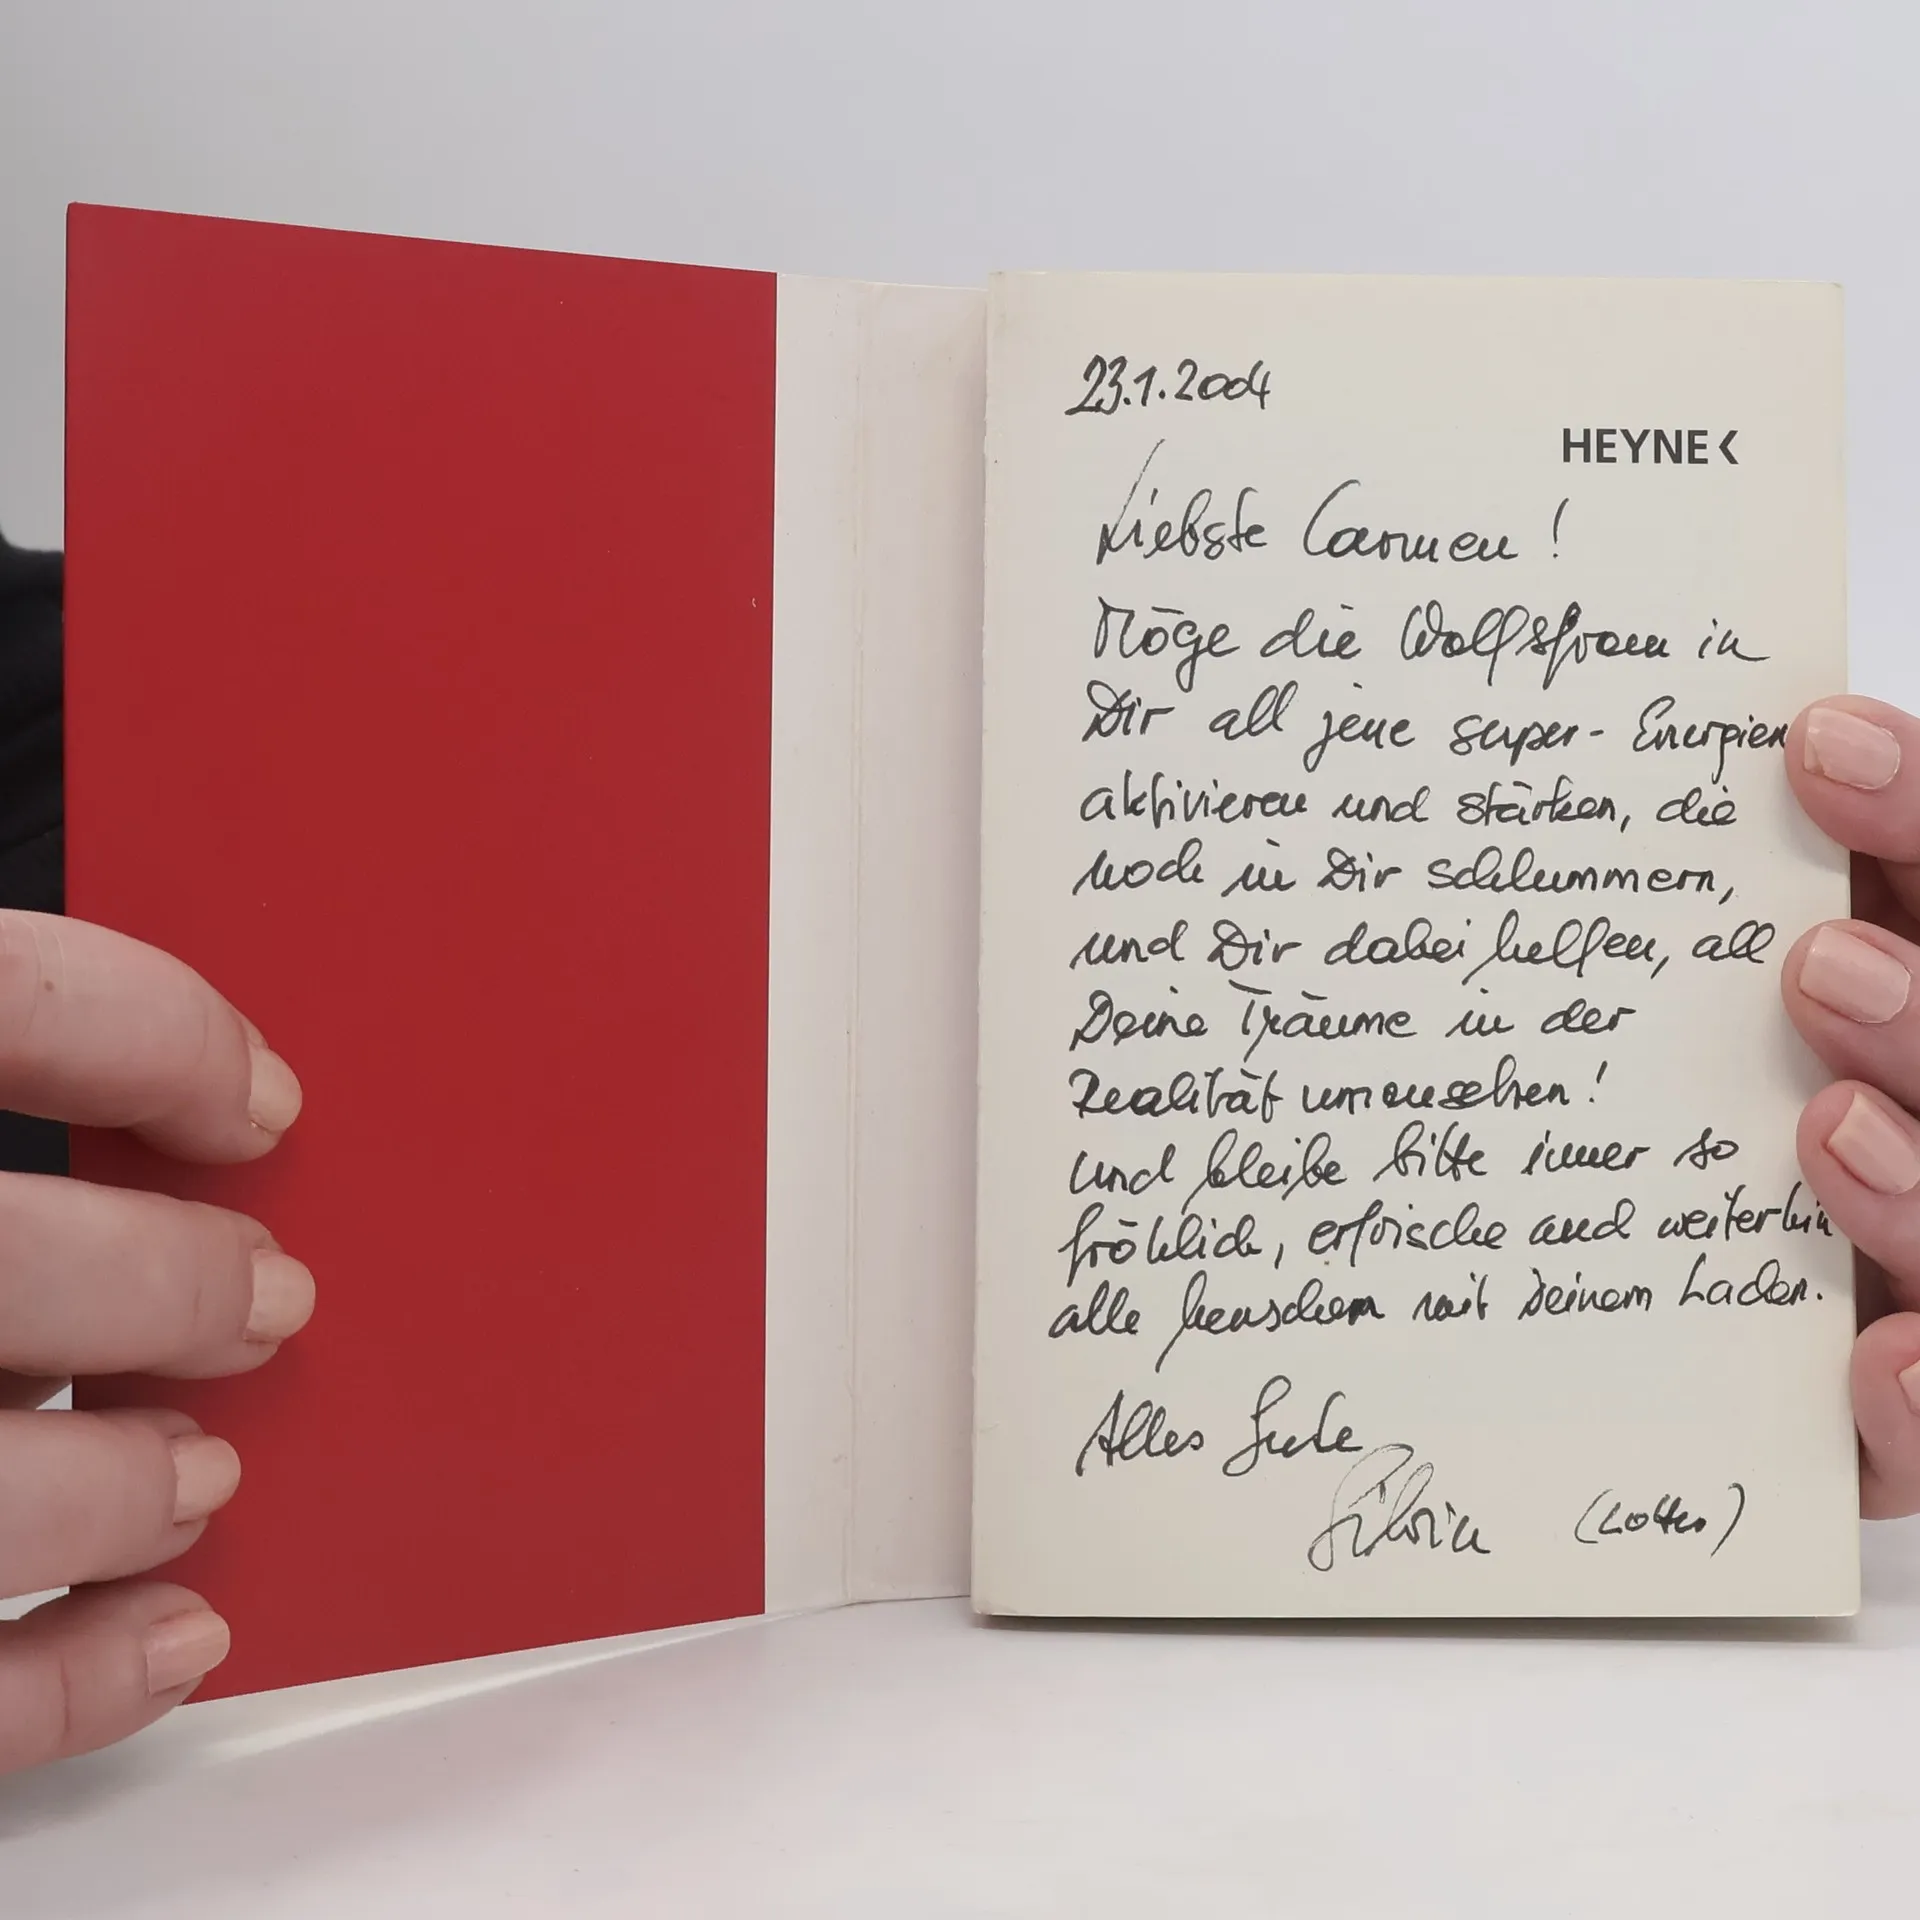 23.1.2004
HEYNE<
Liebste Carmen!
Möge die Wolfsfrau in
Dir all jene super-Energien
aktivieren und stärken, die
noch in Dir schlummern,
und Dir dabei helfen, all
Deine Träume in der
Realität umzusetzen!
Und bleibe bitte immer so
fröhlich, erfrische und weiterhin
alle Menschen mit Deinem Lachen.
Alles Gute
Silvia (Lotter)